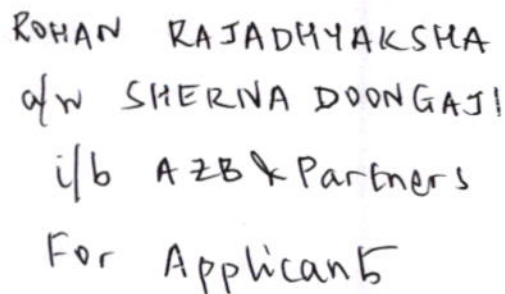 ROHAN RAJADHYAKSHA
a/w SHERNA DOONGAJI
i/b AZB & Partners
For Applicant